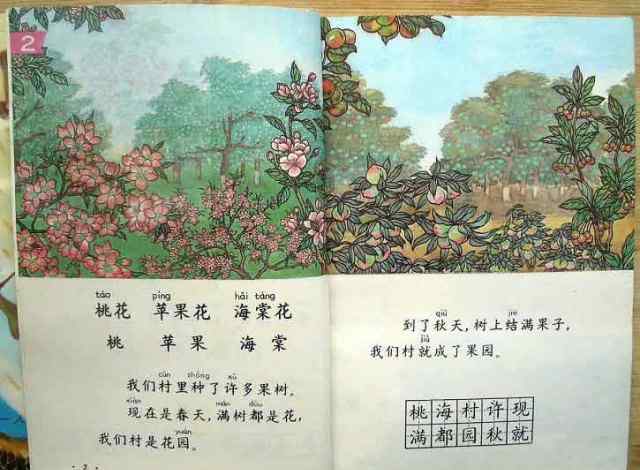 2
táo píng hǎi táng
桃花 苹果花 海棠花
桃 苹果 海棠
cūn zhòng xǔ
我们村里种了许多果树。
xiàn mǎn dōu
现在是春天,满树都是花,
yuán
我们村是花园。
2
qiū jiē
到了秋天,树上结满果子,
jiù
我们村就成了果园。
桃海村许现
满都园秋就